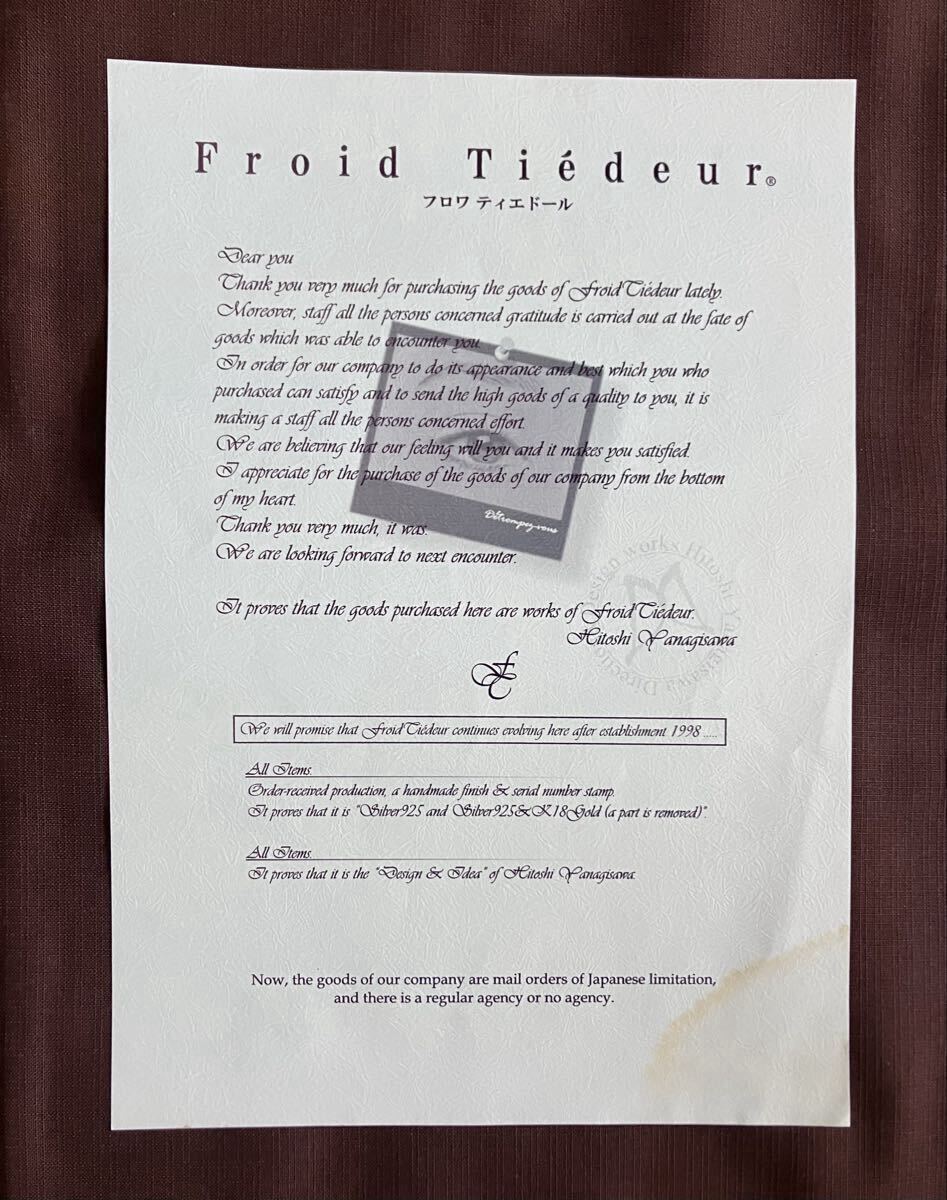 Froid Tiédeur®
フロワ ティエドール
Dear you
Thank you very much for purchasing the goods of FroidTiédeur lately.
Moreover, staff all the persons concerned gratitude is carried out at the fate of
goods which was able to encounter you.
In order for our company to do its appearance and best which you who
purchased can satisfy and to send the high goods of a quality to you, it is
making a staff all the persons concerned effort.
We are believing that our feeling will you and it makes you satisfied.
I appreciate for the purchase of the goods of our company from the bottom
of my heart.
Thank you very much, it was.
We are looking forward to next encounter.
Détrompez-vous
It proves that the goods purchased here are works of FroidTiédeur.
Hitoshi Yanagisawa
We will promise that FroidTiédeur continues evolving here after establishment 1998 .....
All Items.
Order-received production, a handmade finish & serial number stamp.
It proves that it is "Silver925 and Silver925&K18Gold (a part is removed)".
All Items.
It proves that it is the "Design & Idea" of Hitoshi Yanagisawa.
Now, the goods of our company are mail orders of Japanese limitation,
and there is a regular agency or no agency.